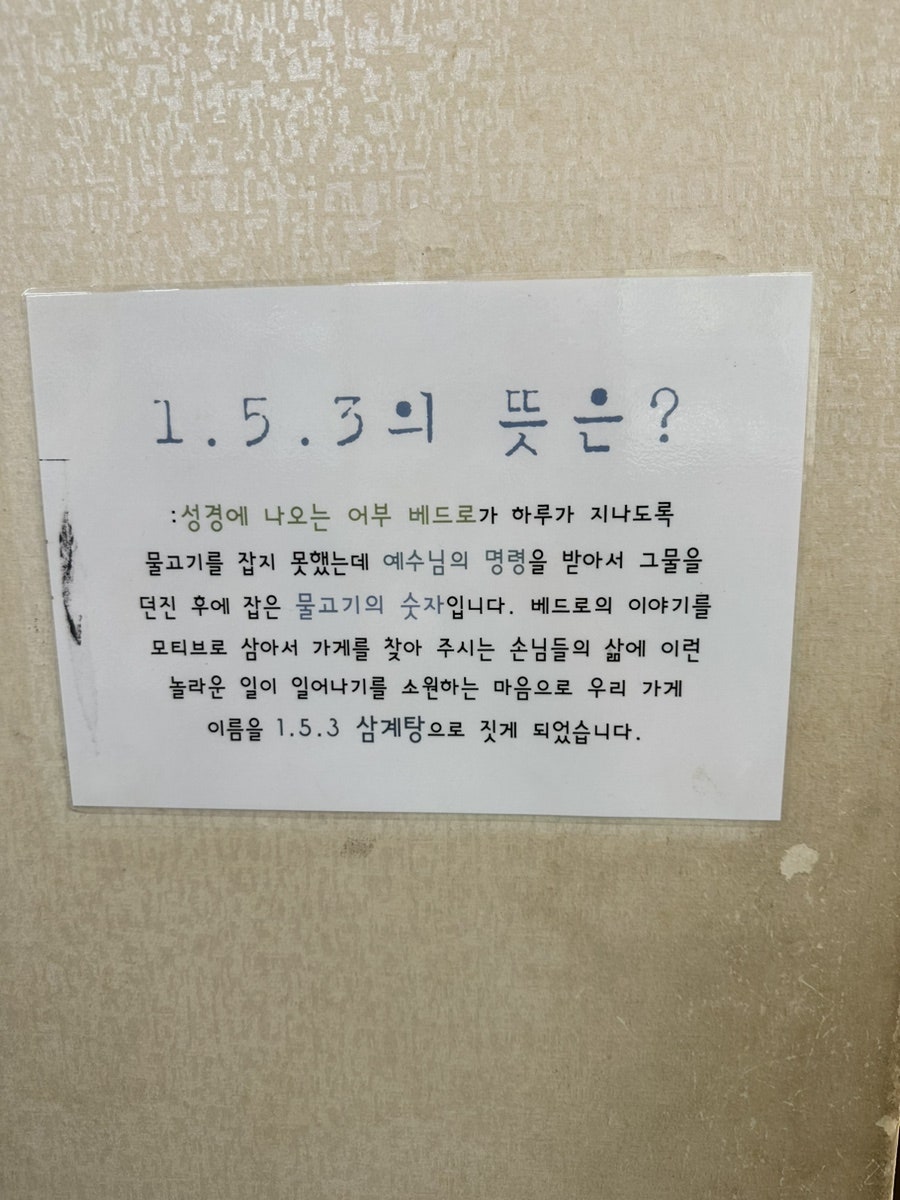 1.5.3의 뜻은?
:성경에 나오는 어부 베드로가 하루가 지나도록
물고기를 잡지 못했는데 예수님의 명령을 받아서 그물을
던진 후에 잡은 물고기의 숫자입니다. 베드로의 이야기를
모티브로 삼아서 가게를 찾아 주시는 손님들의 삶에 이런
놀라운 일이 일어나기를 소원하는 마음으로 우리 가게
이름을 1.5.3 삼계탕으로 짓게 되었습니다.